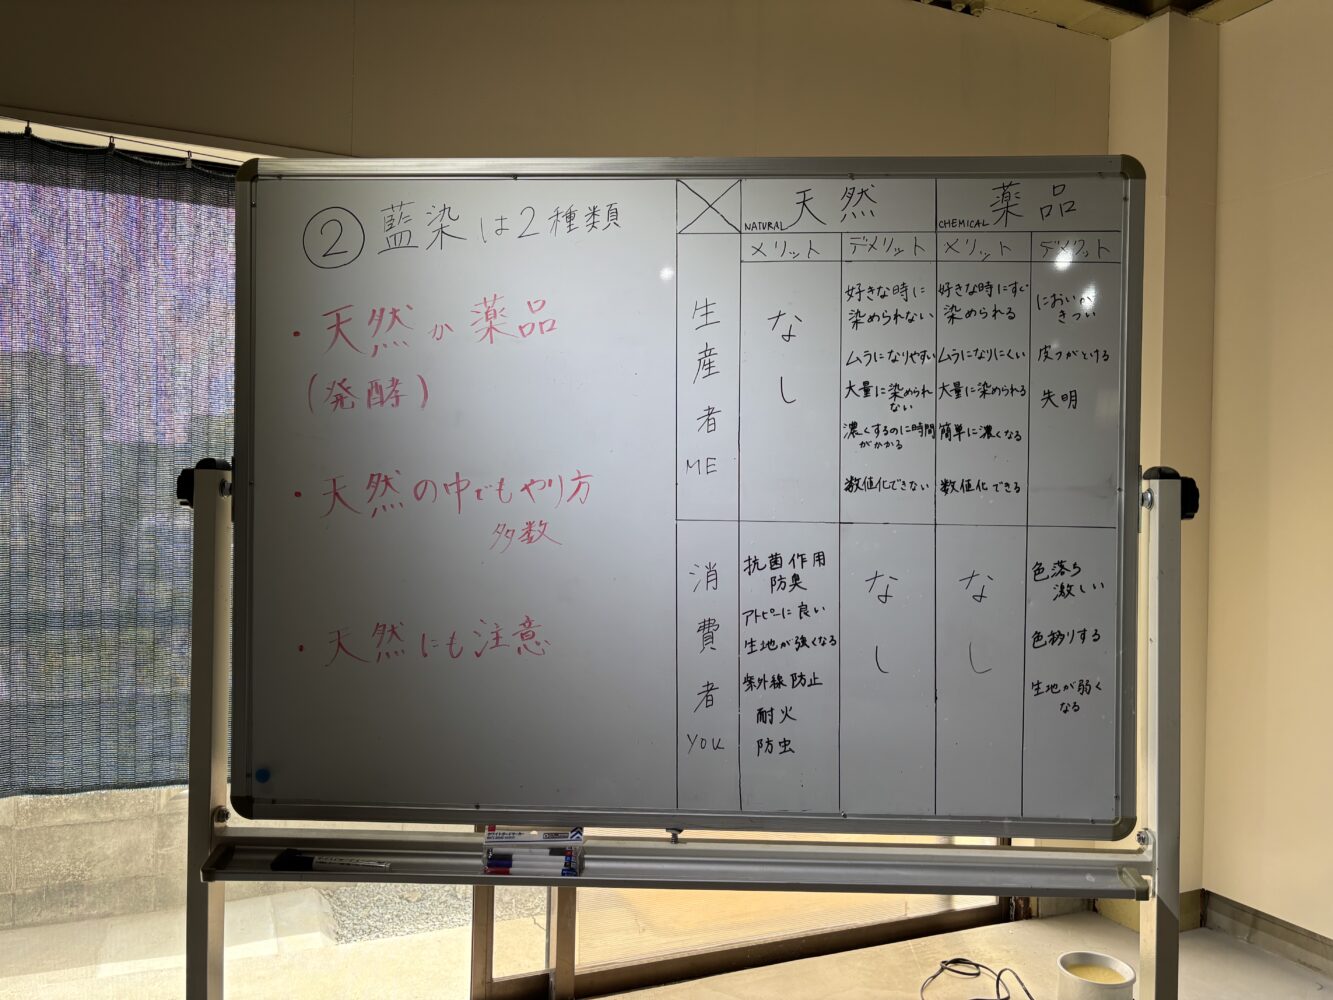 ② 藍染は2種類
・天然か薬品
(発酵)
・天然の中でもやり方
多数
・天然にも注意
天然
NATURAL
薬品
CHEMICAL
メリット
デメリット
メリット
デメリット
生産者
ME
なし
好きな時に
染められない
ムラになりやすい
大量に染められ
ない
濃くするのに時間
がかかる
数値化できない
好きな時にすぐ
染められる
ムラになりにくい
大量に染められる
簡単に濃くなる
数値化できる
においが
きつい
皮フがとける
失明
消費者
YOU
抗菌作用
防臭
アトピーに良い
生地が強くなる
紫外線防止
耐火
防虫
なし
なし
色落ち
激しい
色移りする
生地が弱く
なる
ホワイトボードマーカー